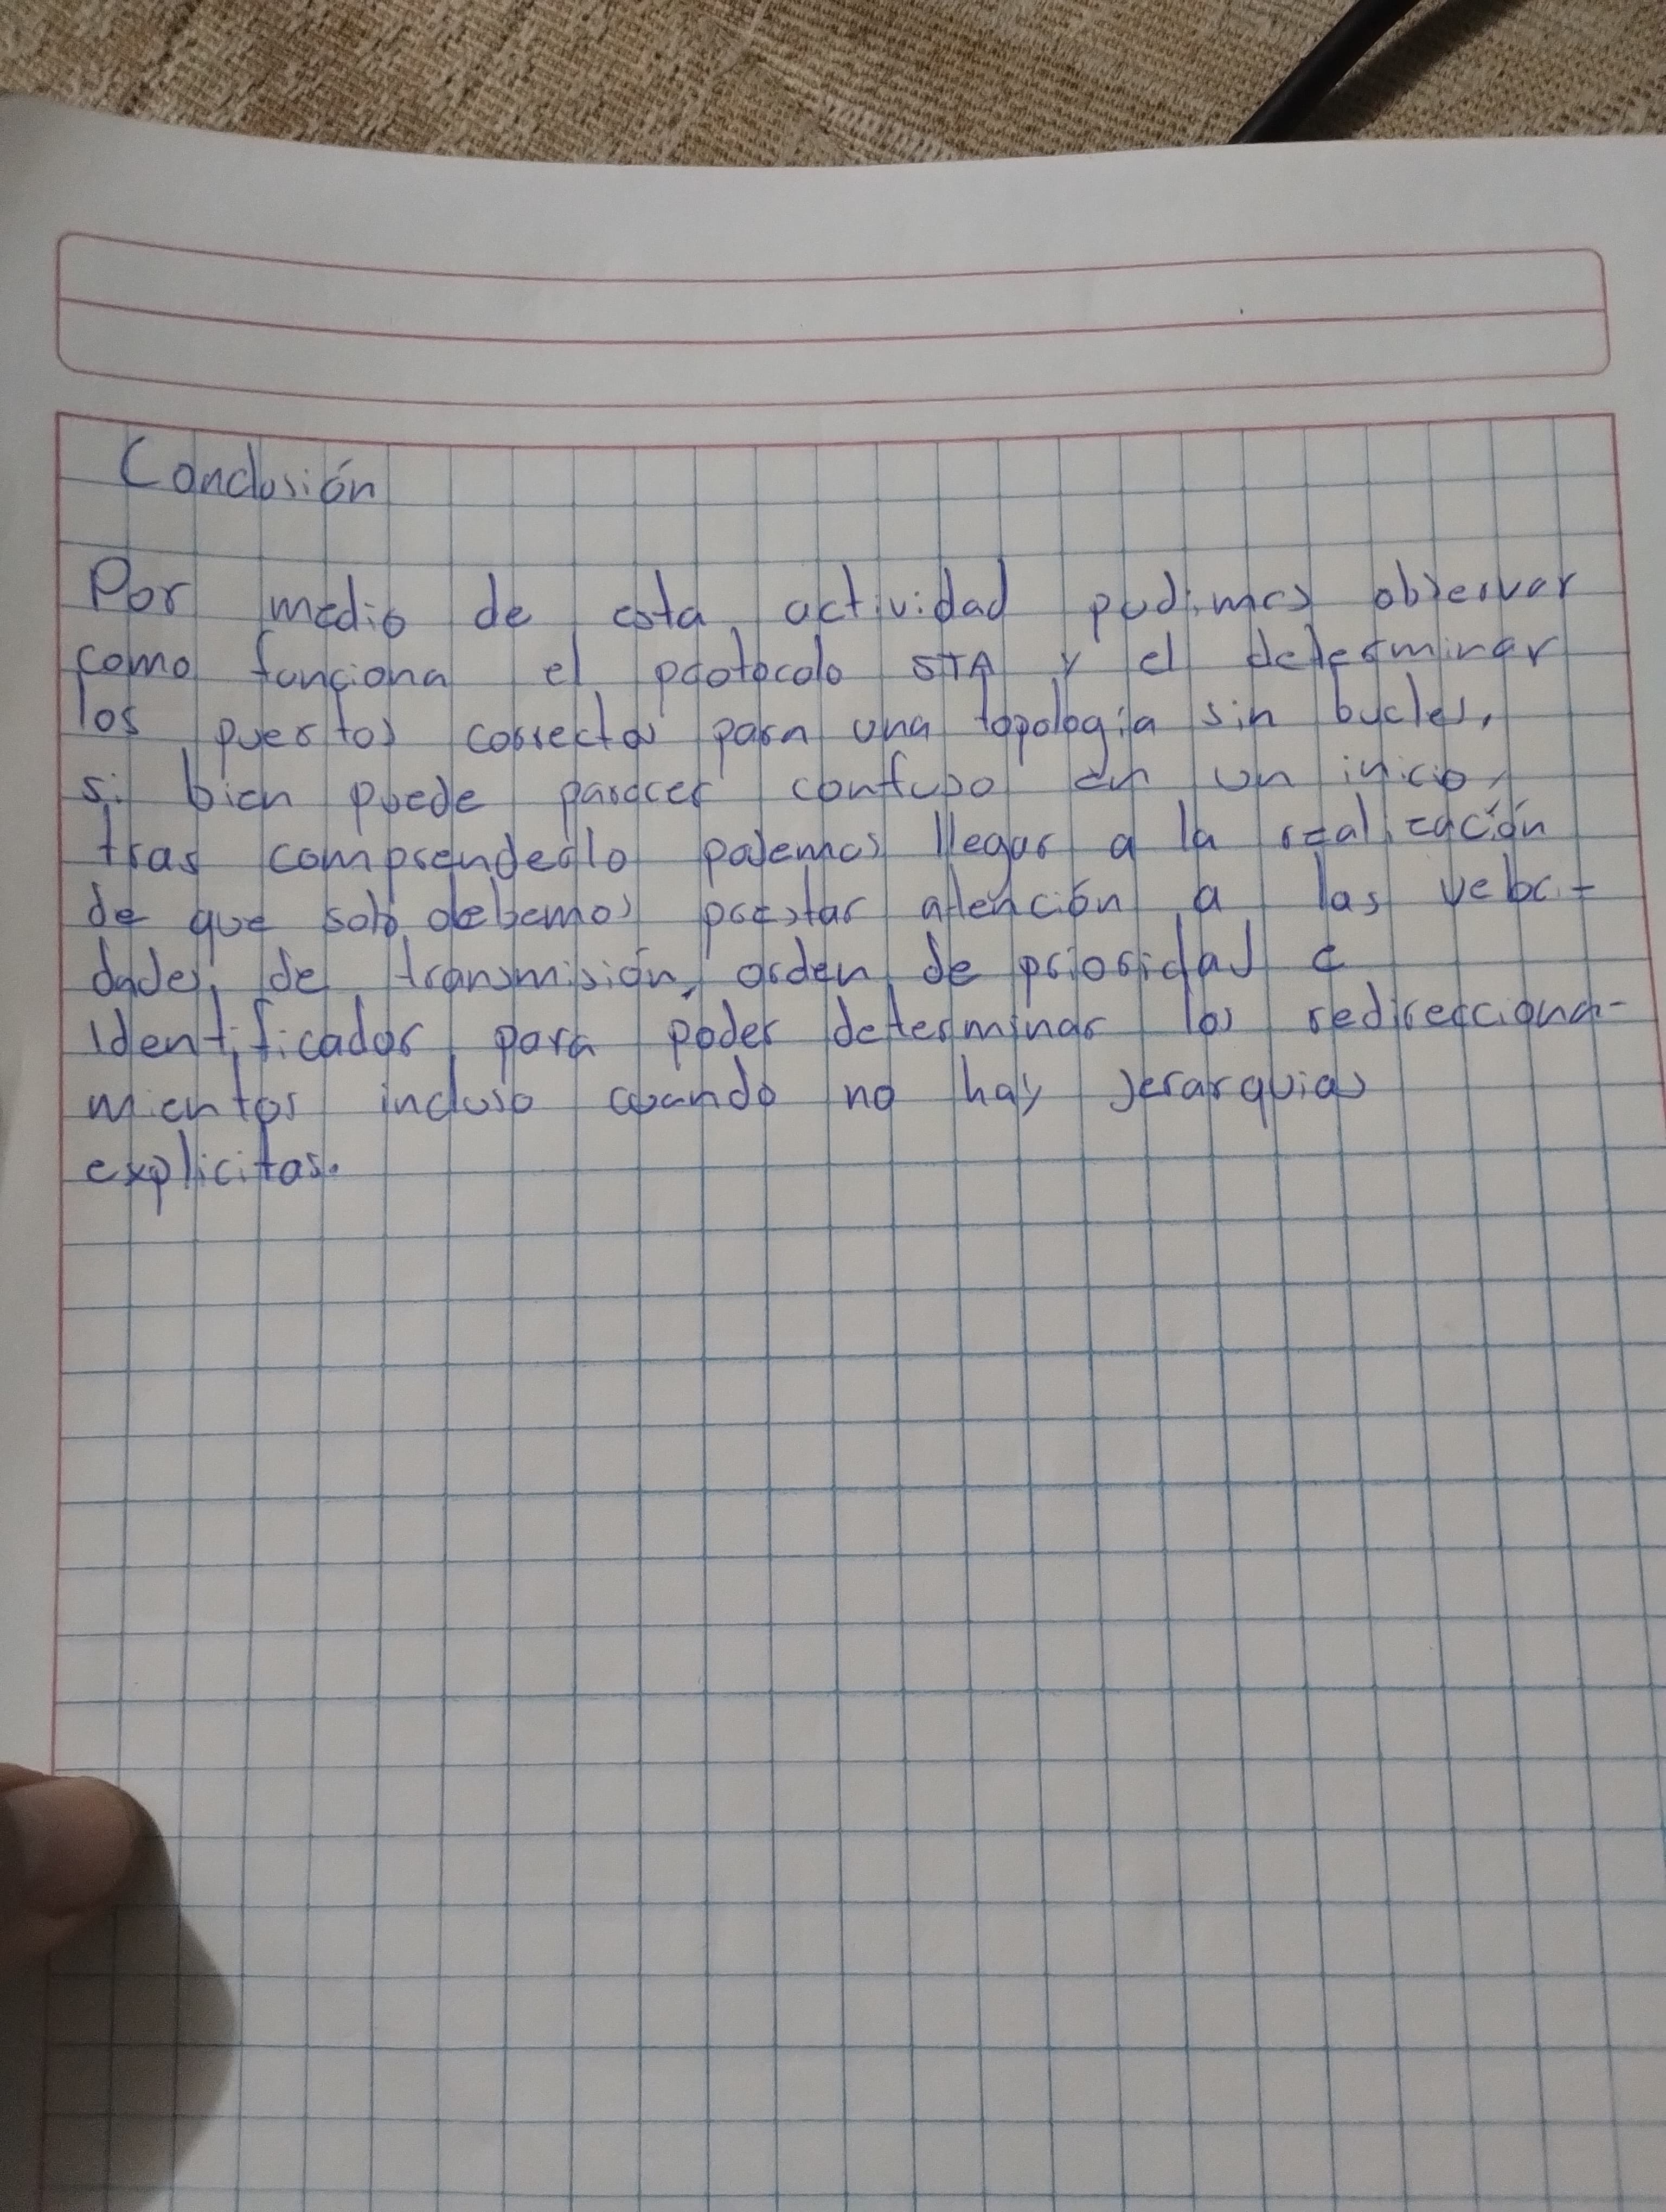 Conclusión
Por medio de esta actividad pudimos observar
como funciona el protocolo STA y el determinar
los puertos correctos para una topología sin bucles,
si bien puede parecer confuso en un inicio,
tras comprenderlo podemos llegar a la realización
de que solo debemos prestar atención a las veloci-
dades de transmisión, orden de prioridad e
identificador para poder determinar los redirecciona-
mientos incluso cuando no hay jerarquias
explicitas.